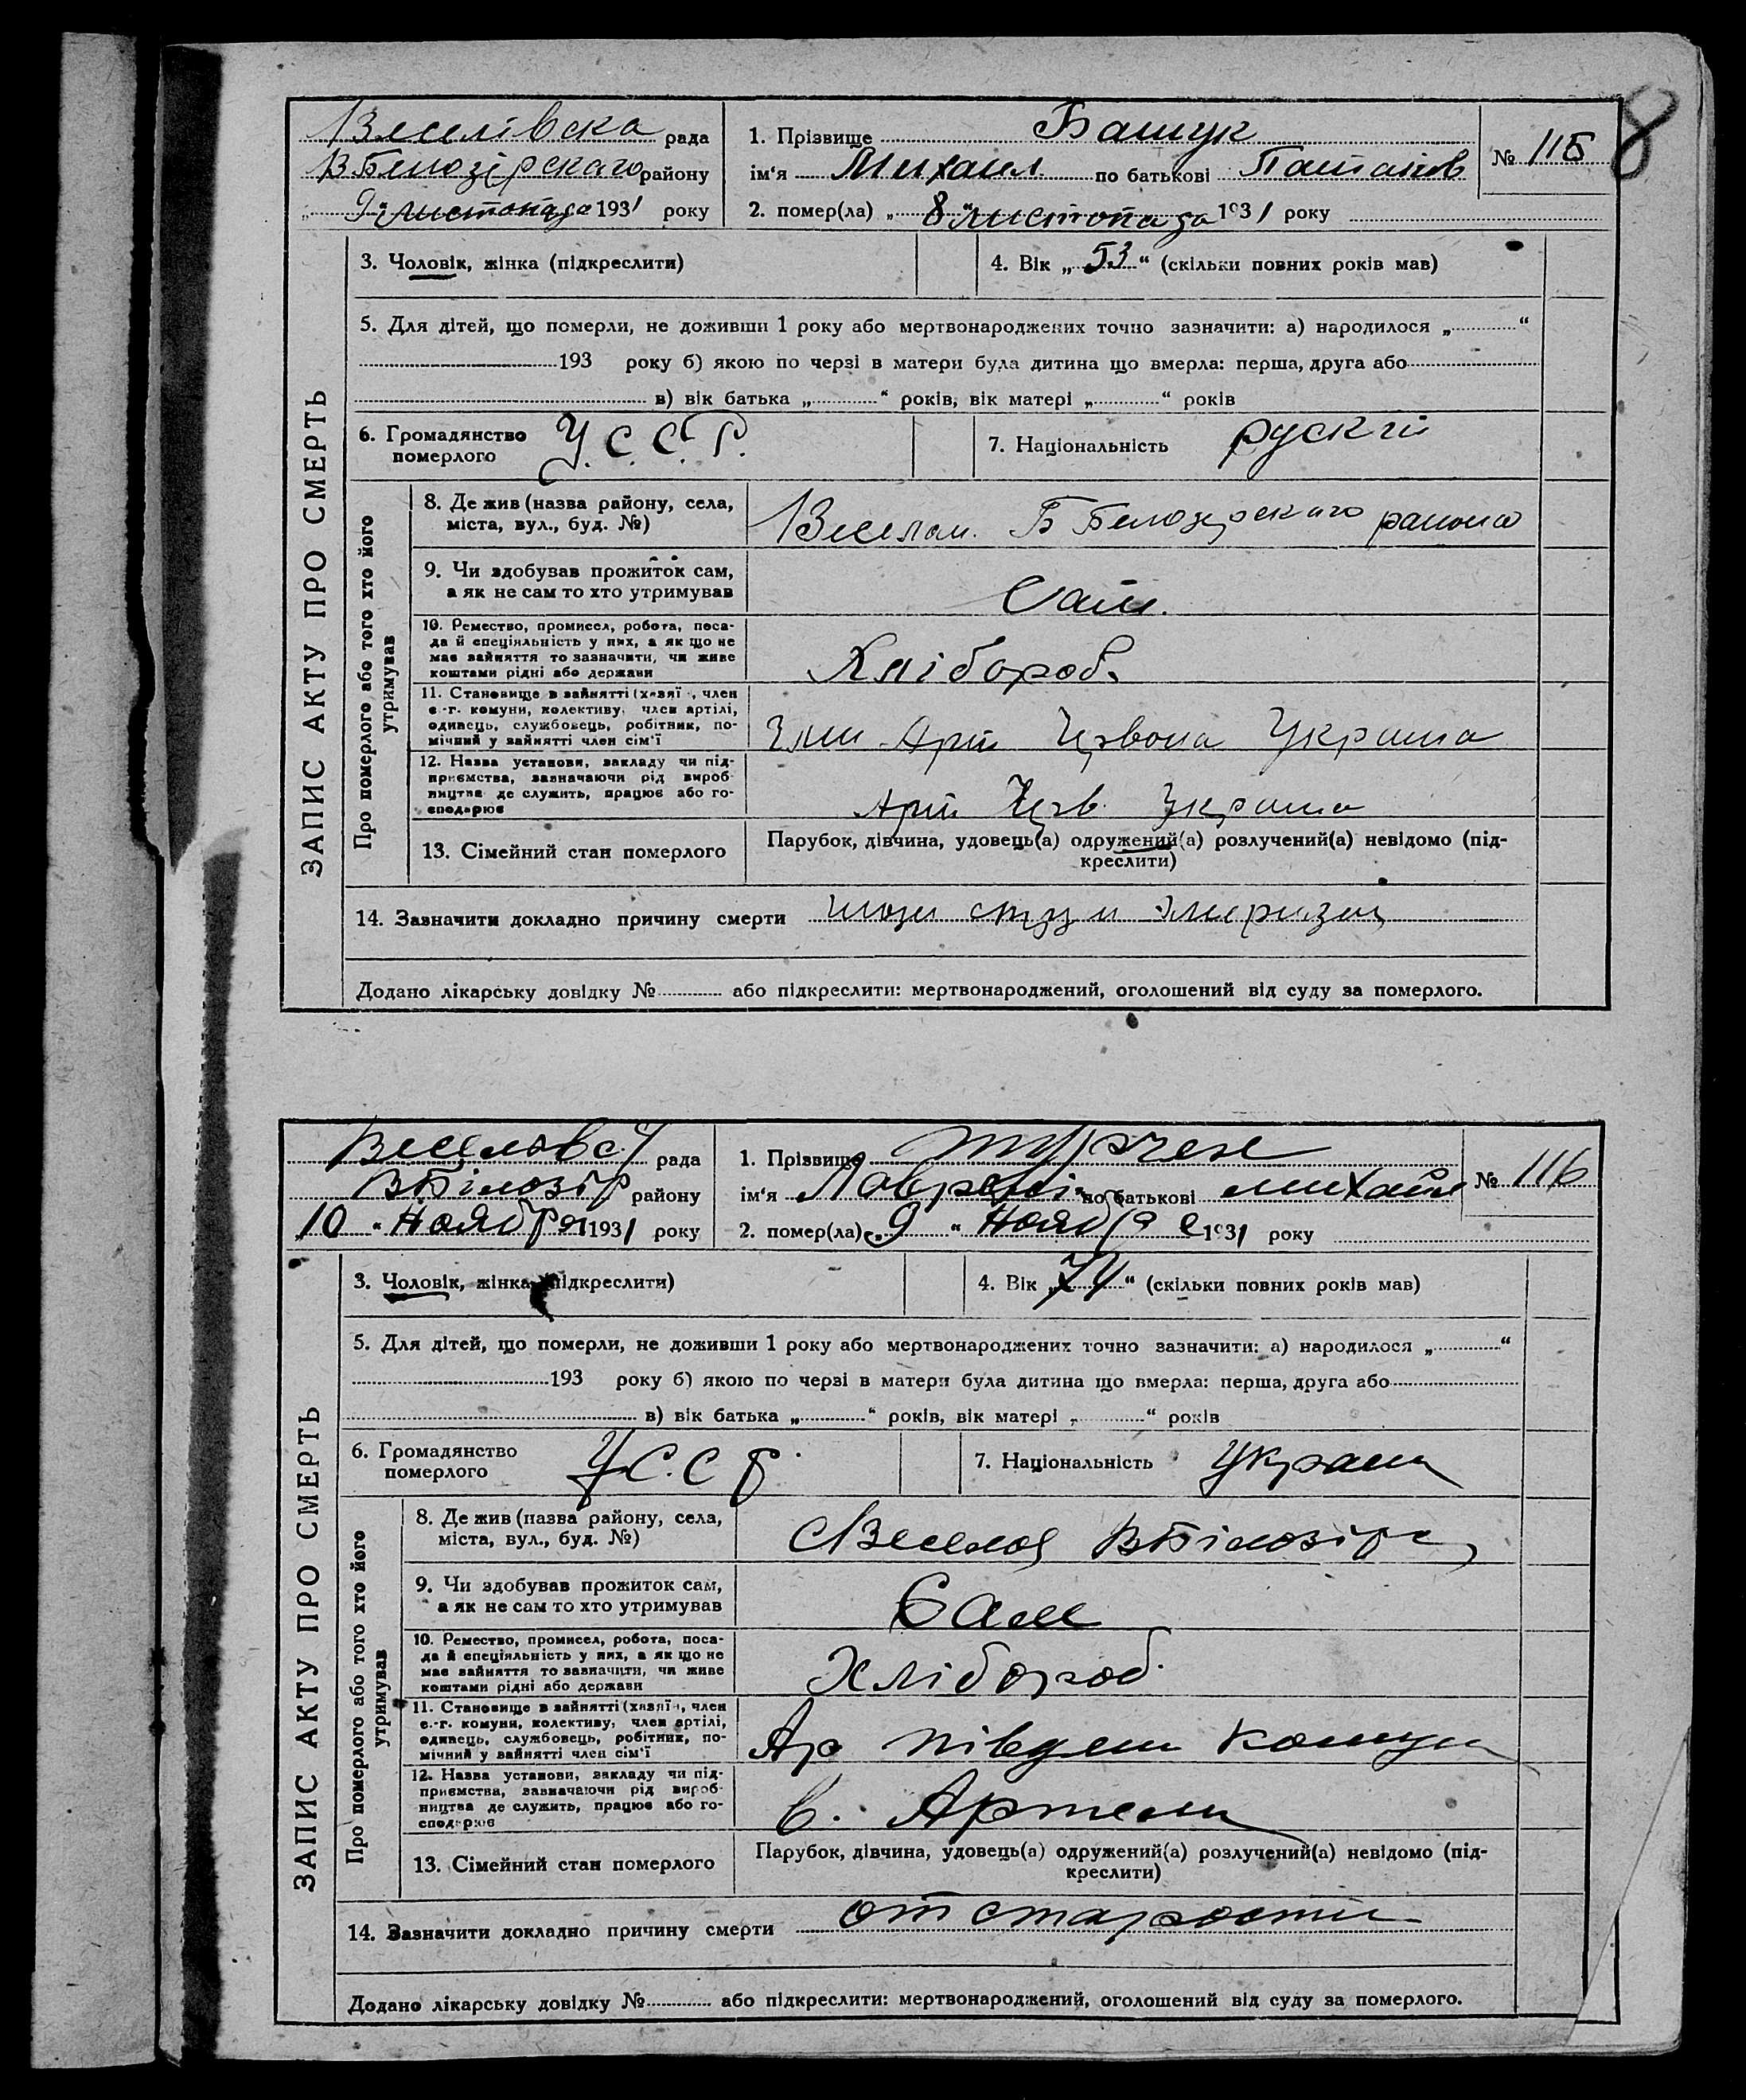 8
Веселівска рада
В Белозірскаго району
„ 9 “ листопада 1931 року
1. Прізвище Башук
ім‘я Михаил по батькові
№ 115
2. помер(ла) „ 8 “ листопада 1931 року
3. Чоловік, жінка (підкреслити)
4. Вік „ 53 “ (скільки повних років мав)
5. Для дітей, що померли, не доживши 1 року або мертвонароджених точно зазначити: а) народилося „ “
193 року б) якою по черзі в матери була дитина що вмерла: перша, друга або
в) вік батька „ “ років, вік матері „ “ років
6. Громадянство померлого У. С. С. Р.
7. Національність руский
ЗАПИС АКТУ ПРО СМЕРТЬ
Про померлого або того хто його утримував
8. Де жив (назва району, села,
міста, вул., буд. №)
Белозерскаго района
9. Чи здобував прожиток сам,
а як не сам то хто утримував
Сам.
10. Ремество, промисел, робота, поса-
да й спеціяльність у них, а як що не
має зайняття то зазначити, чи живе
коштами рідні або держави
Хлібороб.
11. Становище в зайнятті (хазяї , член
с.-г. комуни, колективу, член артілі,
одинець, службовець, робітник, по-
мічний у зайнятті член сім‘ї
Член Арт Червона Украина
12. Назва установи, закладу чи під-
приємства, зазначаючи рід вироб-
ництва де служить, працює або го-
сподарює
Арт Черв. Украина
13. Сімейний стан померлого
Парубок, дівчина, удовець(а) одружений(а) розлучений(а) невідомо (під-
креслити)
14. Зазначити докладно причину смерти
Додано лікарську довідку № або підкреслити: мертвонароджений, оголошений від суду за померлого.
рада
ВБілозір району
10 “ Ноября 1931 року
1. Прізвище Турчен
ім‘я Лаврентій по батькові михайл
№ 116
2. помер(ла) „ 9 “ Ноября 1931 року
3. Чоловік, жінка (підкреслити)
4. Вік „ 74 “ (скільки повних років мав)
5. Для дітей, що померли, не доживши 1 року або мертвонароджених точно зазначити: а) народилося „ “
193 року б) якою по черзі в матери була дитина що вмерла: перша, друга або
в) вік батька „ “ років, вік матері „ “ років
6. Громадянство померлого У.С.С.Р.
7. Національність Украин
ЗАПИС АКТУ ПРО СМЕРТЬ
Про померлого або того хто його утримував
8. Де жив (назва району, села,
міста, вул., буд. №)
С Веселоя ВБілозірс
9. Чи здобував прожиток сам,
а як не сам то хто утримував
Сам
10. Ремество, промисел, робота, поса-
да й спеціяльність у них, а як що не
має зайняття то зазначити, чи живе
коштами рідні або держави
Хлібороб.
11. Становище в зайнятті (хазяї , член
с.-г. комуни, колективу, член артілі,
одинець, службовець, робітник, по-
мічний у зайнятті член сім‘ї
Ар Південн Комун
12. Назва установи, закладу чи під-
приємства, зазначаючи рід вироб-
ництва де служить, працює або го-
сподарює
в. Артели
13. Сімейний стан померлого
Парубок, дівчина, удовець(а) одружений(а) розлучений(а) невідомо (під-
креслити)
14. Зазначити докладно причину смерти от старости
Додано лікарську довідку № або підкреслити: мертвонароджений, оголошений від суду за померлого.